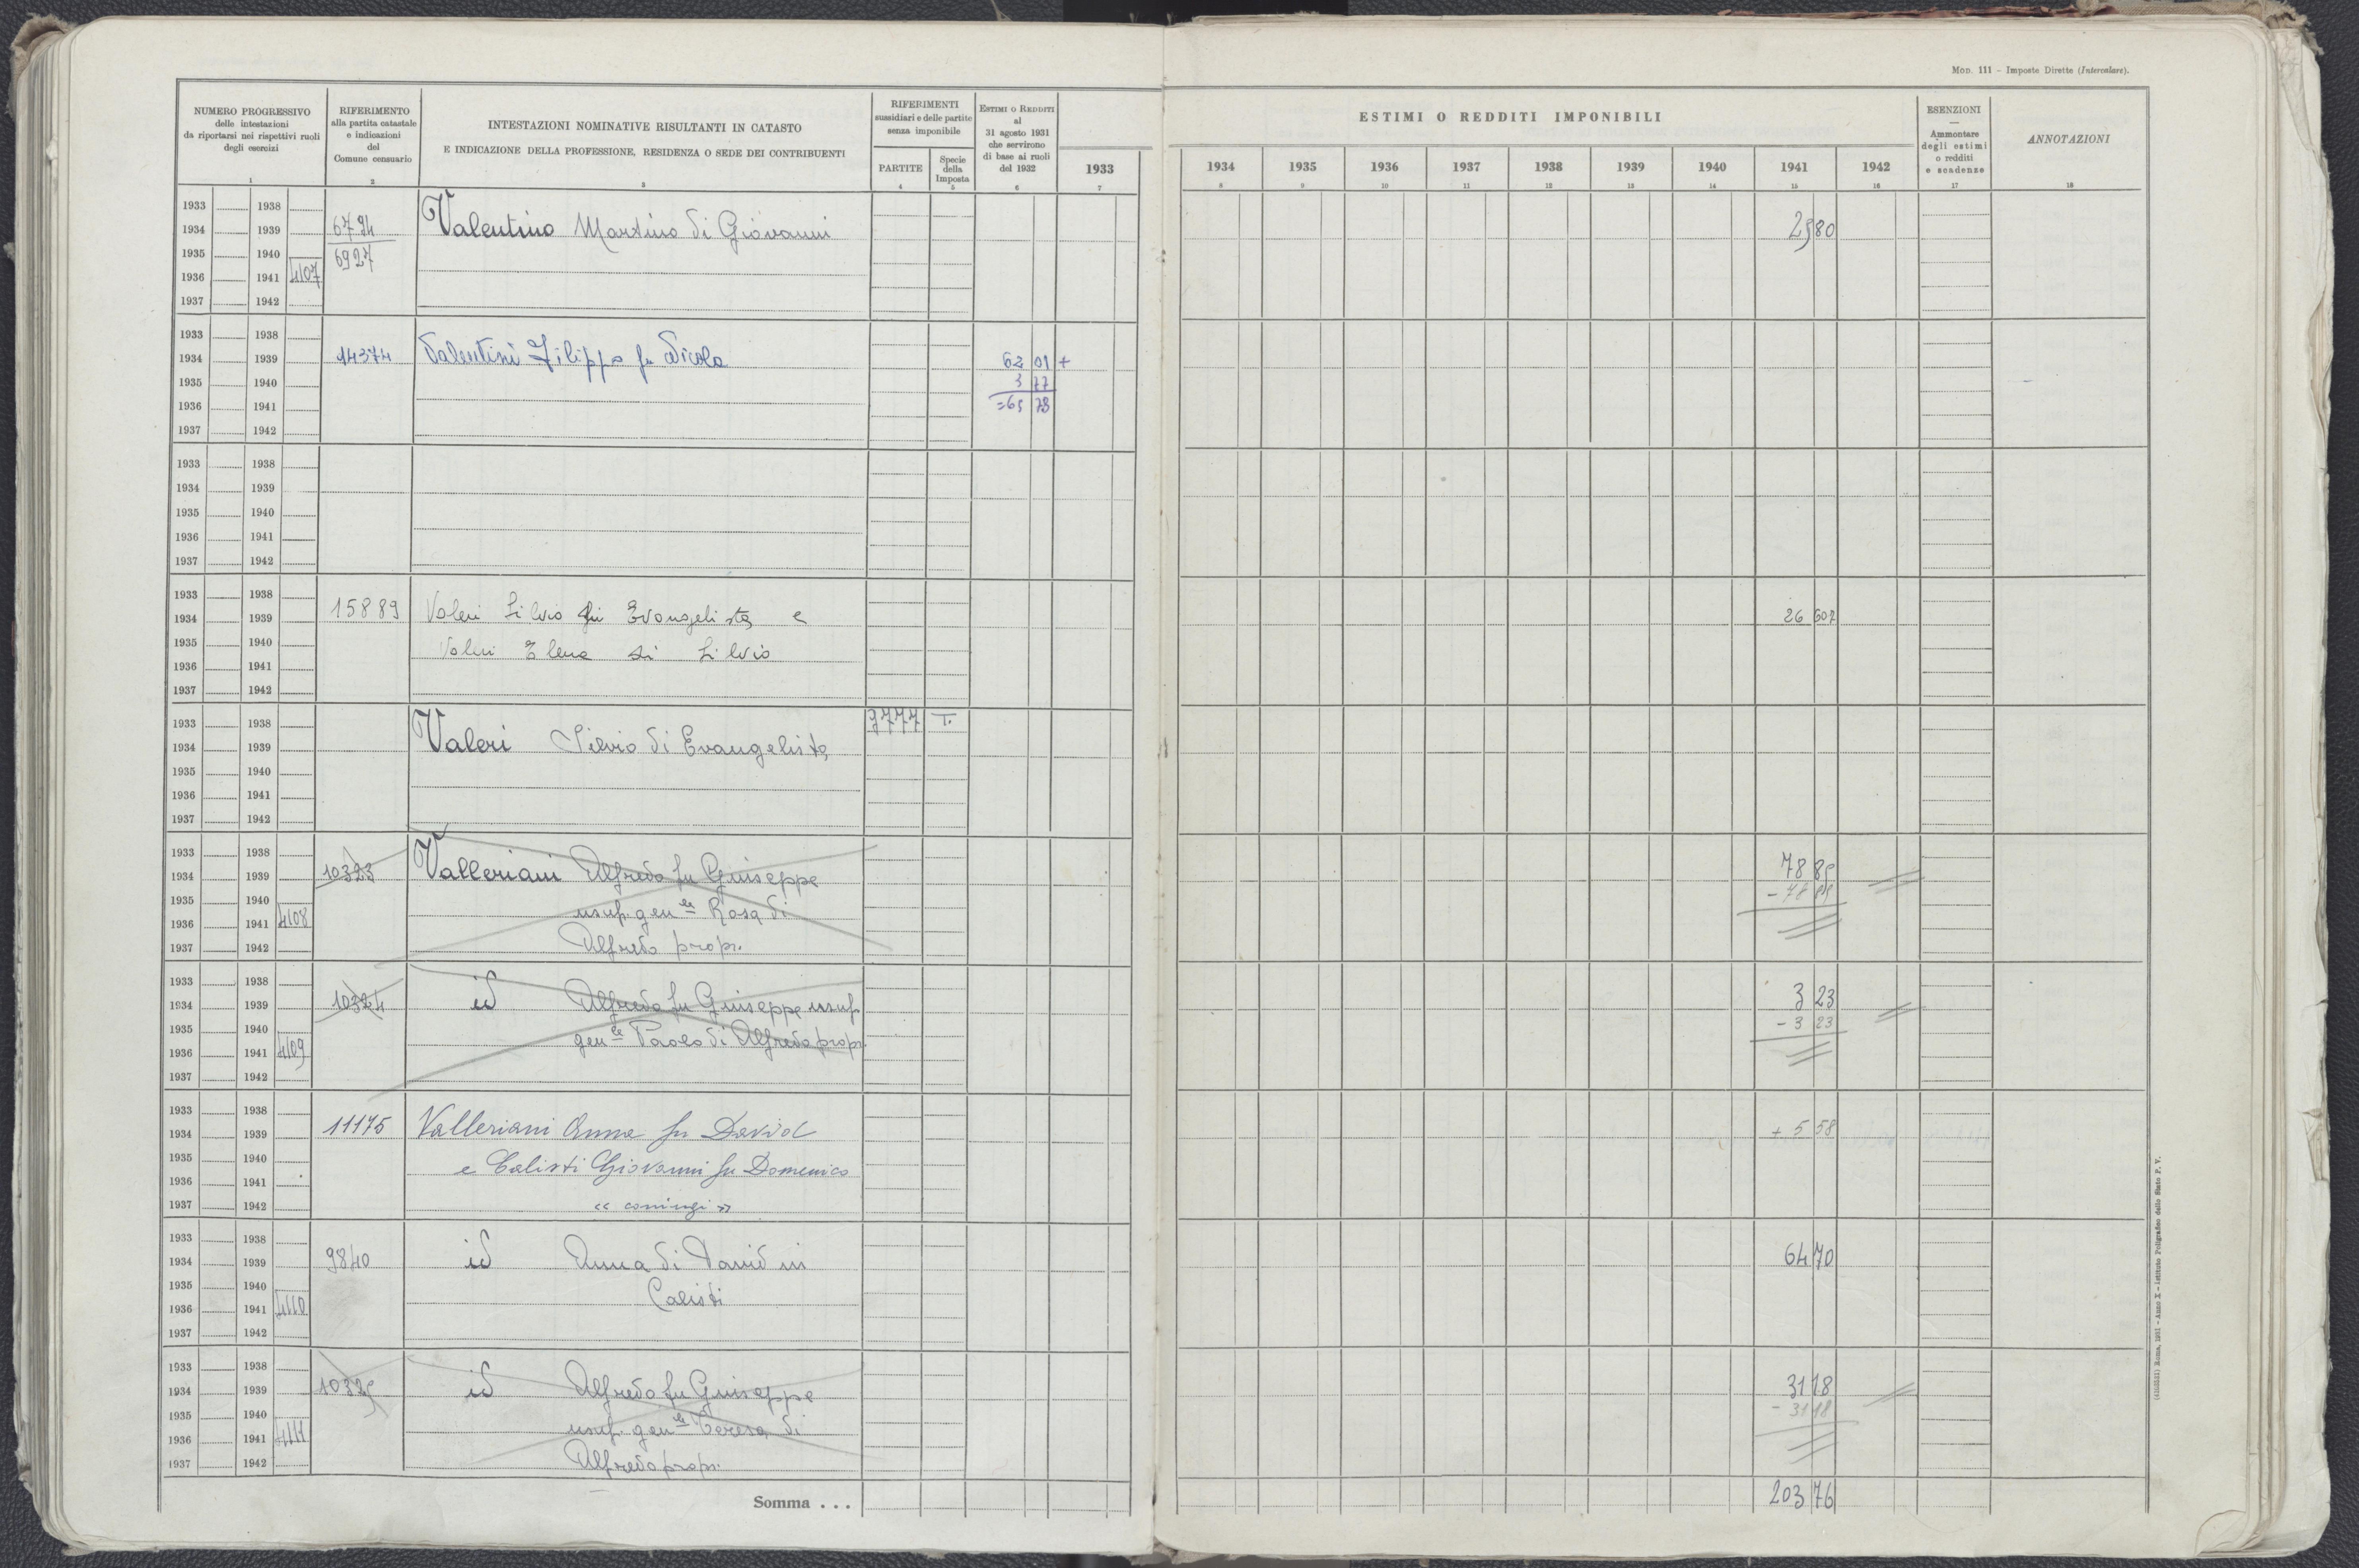 Mod. 111 - Imposte Dirette (Intercalare).
NUMERO PROGRESSIVO
delle intestazioni
da riportarsi nei rispettivi ruoli
degli esercizi
1
RIFERIMENTO
alla partita catastale
e indicazioni
del
Comune censuario
2
INTESTAZIONI NOMINATIVE RISULTANTI IN CATASTO
E INDICAZIONE DELLA PROFESSIONE, RESIDENZA O SEDE DEI CONTRIBUENTI
3
RIFERIMENTI
sussidiari e delle partite
senza imponibile
PARTITE
4
Specie
della
Imposta
5
Estimi o Redditi
al
31 agosto 1931
che servirono
di base ai ruoli
del 1932
6
1933
7
ESTIMI O REDDITI IMPONIBILI
1934 1935 1936 1937 1938 1939 1940 1941 1942
8 9 10 11 12 13 14 15 16
ESENZIONI
—
Ammontare
degli estimi
o redditi
e scadenze
17
ANNOTAZIONI
18
1933 1938
1934 1939 6794 Valentino Martino di Giovanni 2980
1935 1940 6927
1936 1941 4107
1937 1942
1933 1938
1934 1939 14374 Valentini Filippo fu Nicola 62 01 +
1935 1940 3 77
1936 1941 =65 78
1937 1942
1933 1938
1934 1939
1935 1940
1936 1941
1937 1942
1933 1938
1934 1939 15889 Valeri Silvio di Evangelista e 26 607
1935 1940 Valeri Elena di Silvio
1936 1941
1937 1942
1933 1938 9777 T.
1934 1939 Valeri Silvio di Evangelista
1935 1940
1936 1941
1937 1942
1933 1938
1934 1939 10323 Valleriani Alfredo fu Giuseppe 78 85
1935 1940 usuf. gen.le Rosa di - 78 85
1936 1941 4108
1937 1942 Alfredo propr.
1933 1938
1934 1939 10324 id Alfredo fu Giuseppe usuf 3 23
1935 1940 gen.le Paolo di Alfredo propr. - 3 23
1936 1941 4109
1937 1942
1933 1938
1934 1939 11175 Valleriani Anna fu David + 5 58
1935 1940 e Calisti Giovanni fu Domenico
1936 1941
1937 1942 « coniugi »
1933 1938
1934 1939 9840 id Anna di David in 64 70
1935 1940 Calisti
1936 1941 4110
1937 1942
1933 1938
1934 1939 10325 id Alfredo fu Giuseppe 31 18
1935 1940 usuf. gen.le Teresa di - 31 18
1936 1941 4111
1937 1942 Alfredo propr.
Somma . . . 203 76
Roma, 1931 - Anno X - Istituto Poligrafico dello Stato P. V.